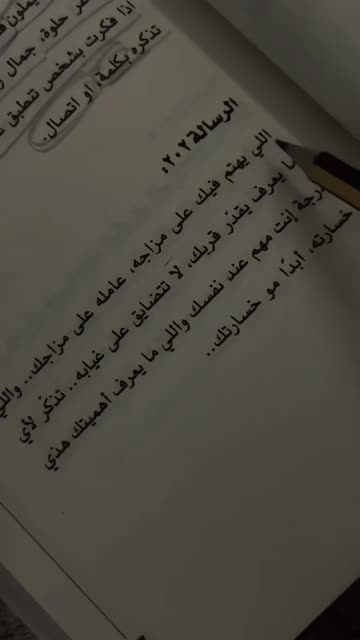 حلوة، جمال
اذا فكرت بشخص تنطبق
تذكره بكلمة او اتصال.
الرسالة ٢٠٢:
اللي يهتم فيك على مزاجه، عامله على مزاجك.. واللي
ما يعرف يقدّر قربك، لا تتضايق على غيابه.. تذكّر لأي
درجة إنت مهم عند نفسك واللي ما يعرف أهميتك هذي
خسارته، أبدًا مو خسارتك..